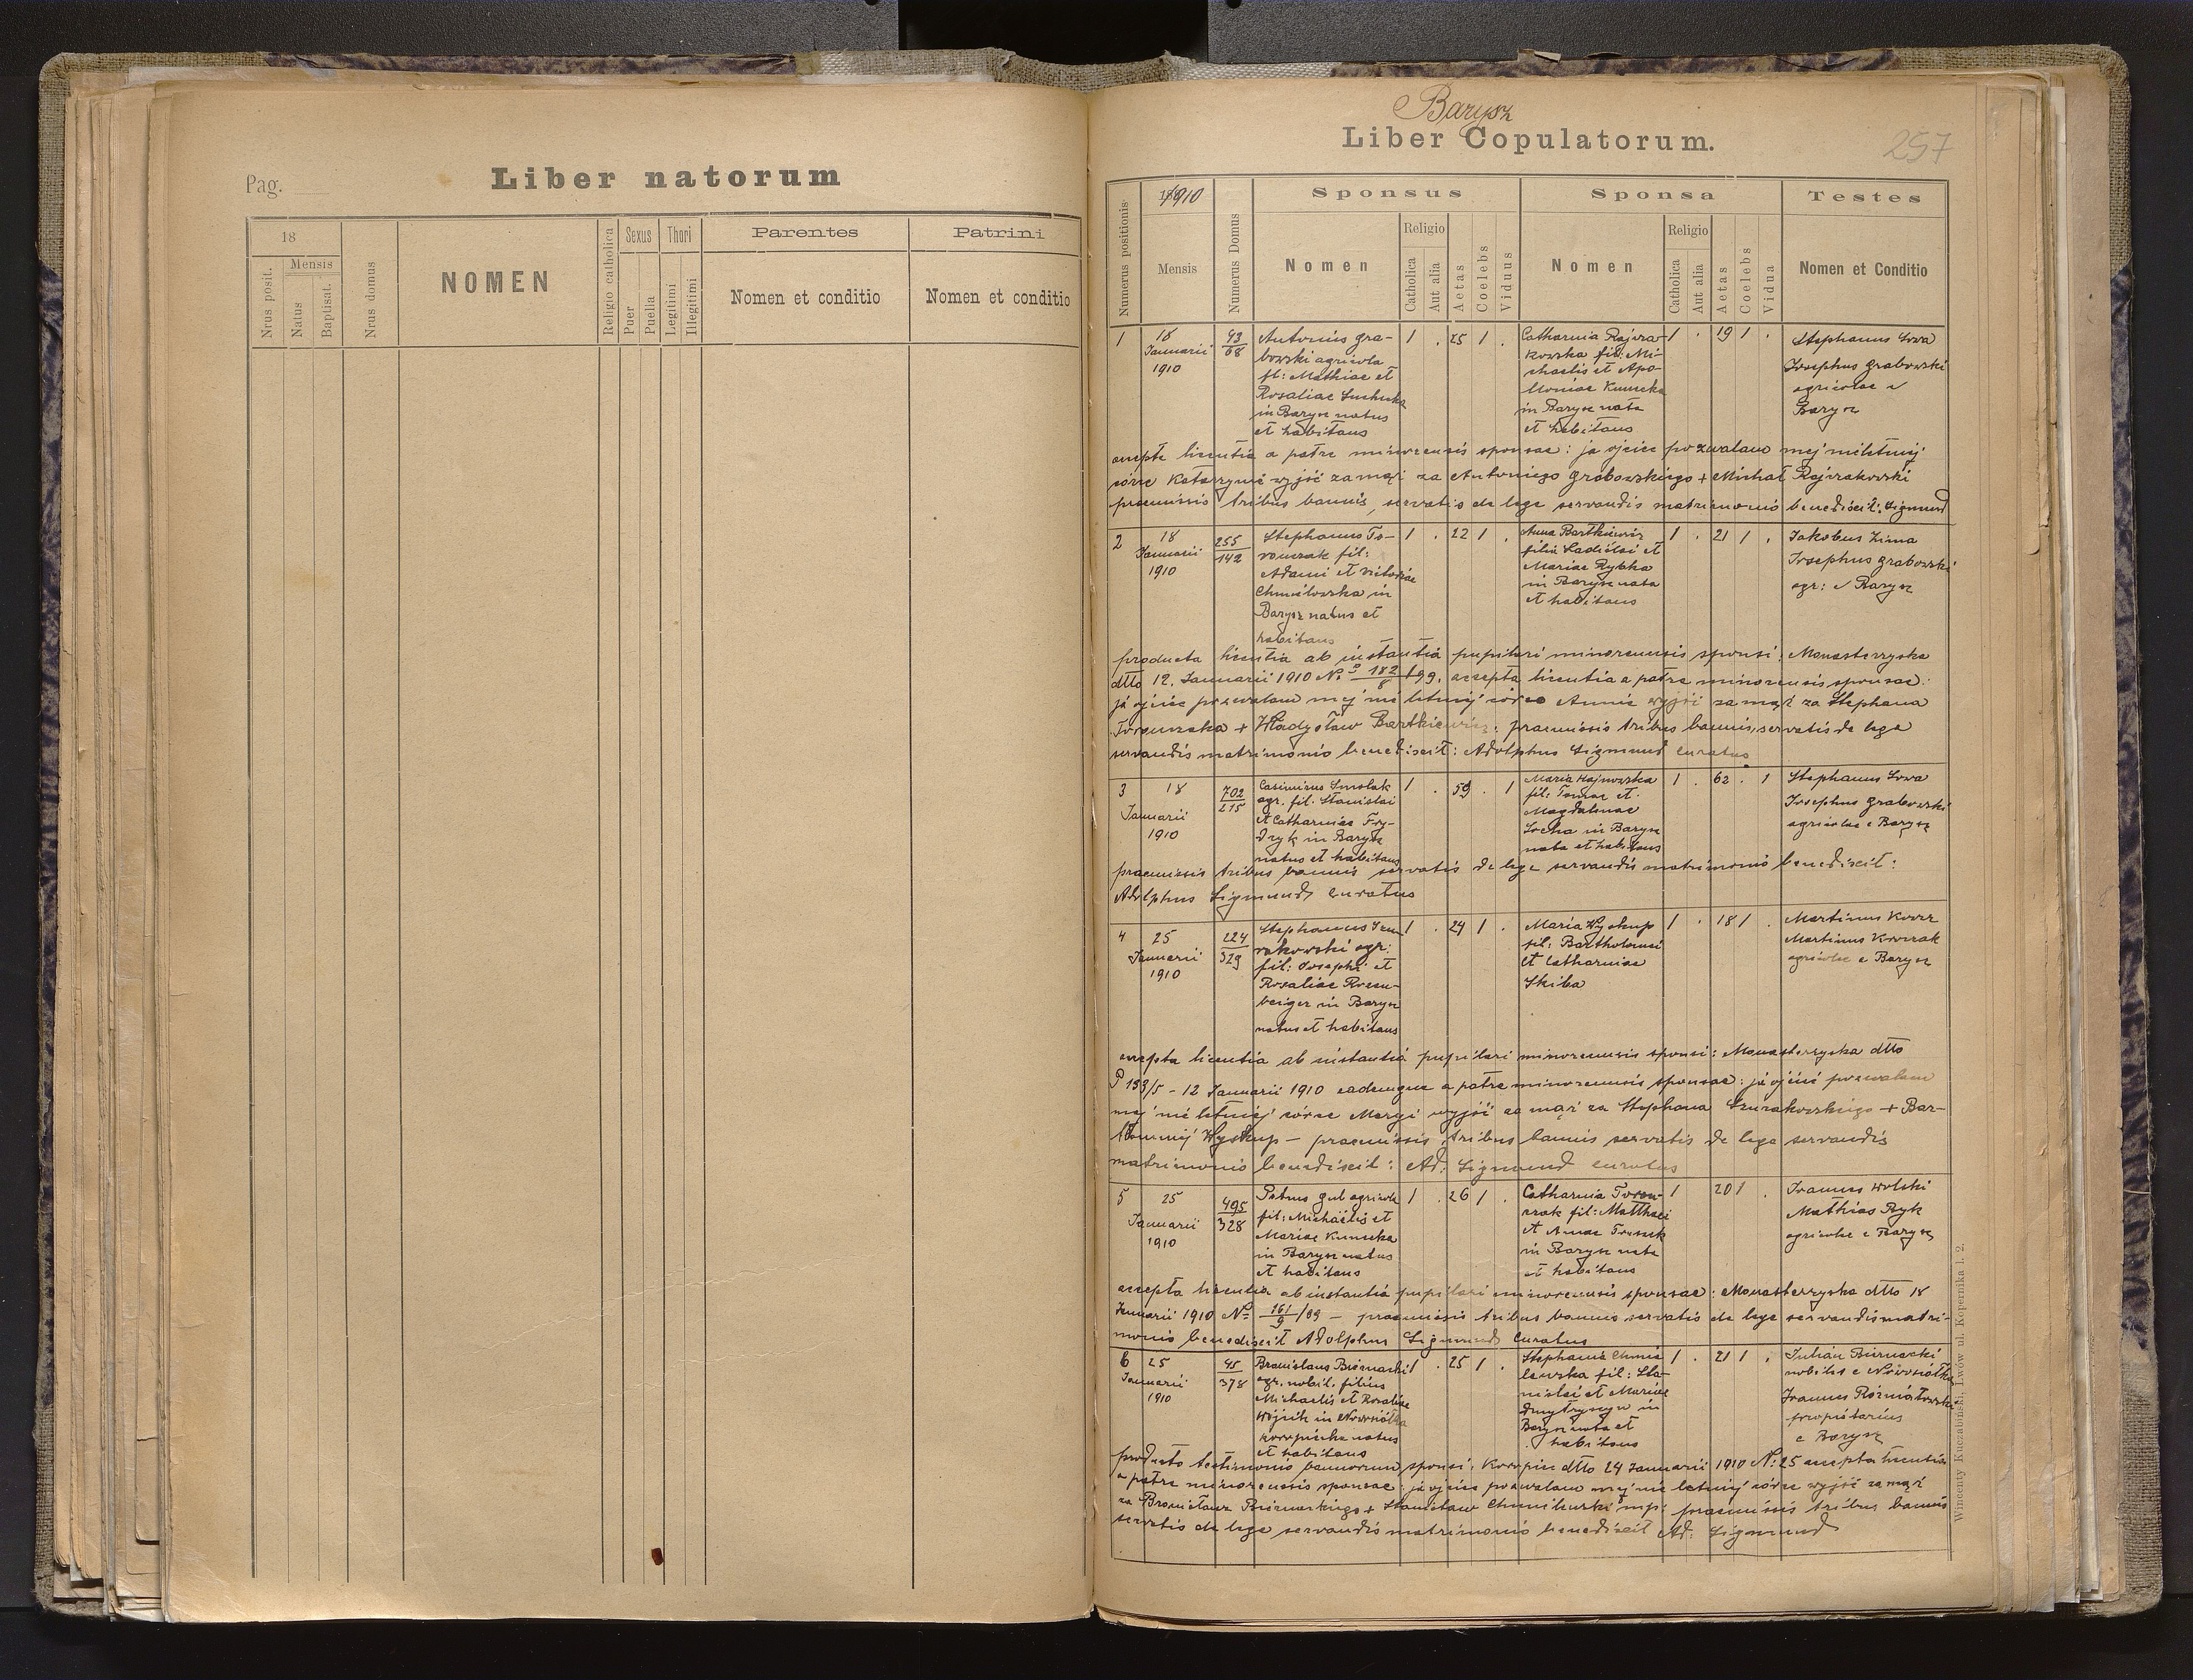 Pag.
Liber natorum
18
Nrus posit.
Mensis
Natus
Baptisat.
Nrus domus
NOMEN
Religio catholica
Sexus
Puer
Puella
Thori
Legitimi
Illegitimi
Parentes
Nomen et conditio
Patrini
Nomen et conditio
Barysz
Liber Copulatorum.
257
Numerus positionis
1910
Mensis
Numerus Domus
Sponsus
Nomen
Religio
Catholica
Aut alia
Aetas
Coelebs
Viduus
Sponsa
Nomen
Religio
Catholica
Aut alia
Aetas
Coelebs
Vidua
Testes
Nomen et Conditio
1
18
Januarii
1910
93
68
Antonius Gra-
bowski agricola
fil: Mathiae et
Rosaliae
in Barysz natus
et habitans
1 . 25 1 .
Catharina Rajzra-
kowska fil: Mi-
chaelis et Apo-
loniae Kuneska
in Barysz nata
et habitans
1 . 19 1 .
Stephanus Sowa
Josephus Grabowski
agricolae e
Barysz
accepta licentia a patre minorennis sponsae: ja ojciec pozwalam mej niletniej
córce Katarzynie wyjść zamąż za Antoniego Grabowskiego + Michał Rajzrakowski
praemissis tribus bannis, servatis de lege servandis matrimonio benedixit: Sigmund
2
18
Januarii
1910
255
142
Stephanus To-
ronczak fil:
Adami et Victoriae
Chmielowska in
Barysz natus et
habitans
1 . 22 1 .
Anna Bartkiewicz
filia Ladislai et
Mariae Rybka
in Barysz nata
et habitans
1 . 21 1 .
Jakobus Zima
Josephus Grabowski
agr: e Barysz
producta licentia ab instantia pupilari minorennis sponsi, Monasterzyska
dtto 12. Januarii 1910 No 182/8 /99, accepta licentia a patre minorennis sponsae:
ja ojciec pozwalam mej nieletniej córce Annie wyjść zamąż za Stephana
Toronczaka + Władysław Bartkiewicz: praemissis tribus bannis, servatis de lege
servandis matrimonio benedixit: Adolphus Sigmund curatus
3
18
Januarii
1910
702
215
Casimirus Smolak
agr. fil. Stanislai
et Catharinae Fry-
dryk in Barysz
natus et habitans
1 . 59 . 1
Maria Hajnowska
fil: Tomae et
Magdalenae
Socha in Barysz
nata et habitans
1 . 62 . 1
Stephanus Sowa
Josephus Grabowski
agricolae e Barysz
praemissis tribus bannis servatis de lege servandis matrimonio benedixit:
Adolphus Sigmund curatus
4
25
Januarii
1910
224
329
Stephanus Szu-
rakowski agr:
fil: Josephi et
Rosaliae Rosen-
berger in Barysz
natus et habitans
1 . 24 1 .
Maria Wyskup
fil: Bartholomei
et Catharinae
Skiba
1 . 18 1 .
Martinus Korz
Martinus Krowczak
agricolae e Barysz
accepta licentia ab instantia pupilari minorennis sponsi: Monasterzyska dtto
P 133/5 - 12 Januarii 1910 eademque a patre minorennis sponsae: ja ojciec pozwalam
mej nieletniej córce Maryi wyjść za mąż za Stephana Szurakowskiego + Bar-
tłomiej Wyskup - praemissis tribus bannis servatis de lege servandis
matrimonio benedixit: Ad. Sigmund curatus
5
25
Januarii
1910
495
328
Petrus Gul agricola
fil: Michaëlis et
Mariae Kuneska
in Barysz natus
et habitans
1 . 26 1 .
Catharina Toron-
czak fil: Matthaei
et Annae
in Barysz nata
et habitans
1 20 1 .
Joannes Wolski
Mathias Ryk
agricolae e Barysz
accepta licentia ab instantia pupilari minorennis sponsae: Monasterzyska dtto 18
Januarii 1910 No 161/9 /99 - praemissis tribus bannis servatis de lege servandis matri-
monio benedixit Adolphus Sigmund curatus
6
25
Januarii
1910
45
378
Bronislaus Biernacki
agr. nobil. filius
Michaelis et Rosaliae
Wójcik in Nowosiółka
koropiecka natus
et habitans
1 . 25 1 .
Stephania Chmie-
lewska fil: Sta-
nislai et Mariae
Dmytryszyn in
Barysz nata et
habitans
1 . 21 1 .
Julian Biernacki
nobilis e Nowosiółka
Joannes Rozmiatowski
proprietarius
e Barysz
producto testimonio bannorum sponsi, Koropiec dtto 24 Januarii 1910 N: 25 accepta licentia
a patre minorennis sponsae: ja ojciec pozwalam mej nieletniej córce wyjść zamąż
za Bronisława Biernackiego + Stanisław Chmielewski mp: praemissis tribus bannis
servatis de lege servandis matrimonio benedixit Ad: Sigmund
Wincenty Kuczabiński, Lwów ul. Kopernika l. 2.